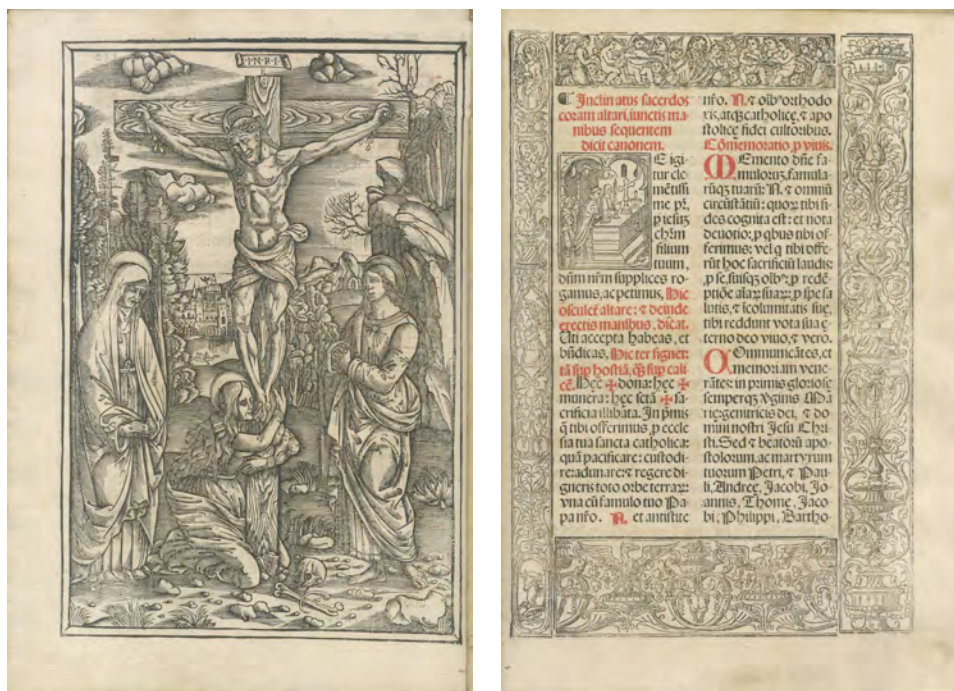 I·N·R·I
¶ Inclinatus sacerdos
coram altari, iunctis ma
nibus sequentem
dicit canonem.
E igi
tur cle
mētissi
me pr̄,
p iesuz
chr̄m
filium
tuum,
dn̄m nr̄m supplices ro-
gamus, ac petimus, Hic
osculet̄ altare: ⁊ deinde
erectis manibus, dicat.
Uti accepta habeas, et
bn̄dicas, Hic ter signet:
tā sup hostiā, q̄ȝ sup cali
cē. Hęc ✠ dona: hęc ✠
munera: hęc sctā ✠ sa-
crificia illibata. In pmis
q̄ tibi offerimus, p eccle
sia tua sancta catholica:
quā pacificare: custodi-
re: adunare: ⁊ regere di-
gneris toto orbe terraꝝ:
vna cū famulo tuo Pa
pa nr̄o. N. et antistite
nr̄o. N. ⁊ oībꝰ orthodo
xis, atqȝ catholicę, ⁊ apo
stolicę fidei cultoribus.
Cōmemoratio, p viuis.
MEmento dn̄e fa-
muloruȝ, famula-
rūqȝ tuarū: N. ⁊ omniū
circūstātiū: quoꝝ tibi fi-
des cognita est: et nota
deuotio: p qbus tibi of-
ferimus: vel q tibi offe-
rūt hoc sacrificiū laudis:
p se, suisqȝ oībꝰ: p redē-
ptiōe aīaꝝ suaꝝ: p spe sa
lutis, ⁊ icolumitatis suę,
tibi reddunt vota sua ę
terno deo viuo, ⁊ vero.
COmmunicātes, et
memoriam vene-
rātes: in primis gloriosę
semperqȝ v̄ginis Ma
rie: genitricis dei, ⁊ do-
mini nostri Jesu Chri-
sti. Sed ⁊ beatorū apo-
stolorum, ac martyrum
tuorum Petri, ⁊ Pau-
li, Andreę, Jacobi, Jo-
annis, Thomę, Jaco
bi, Philippi, Bartho